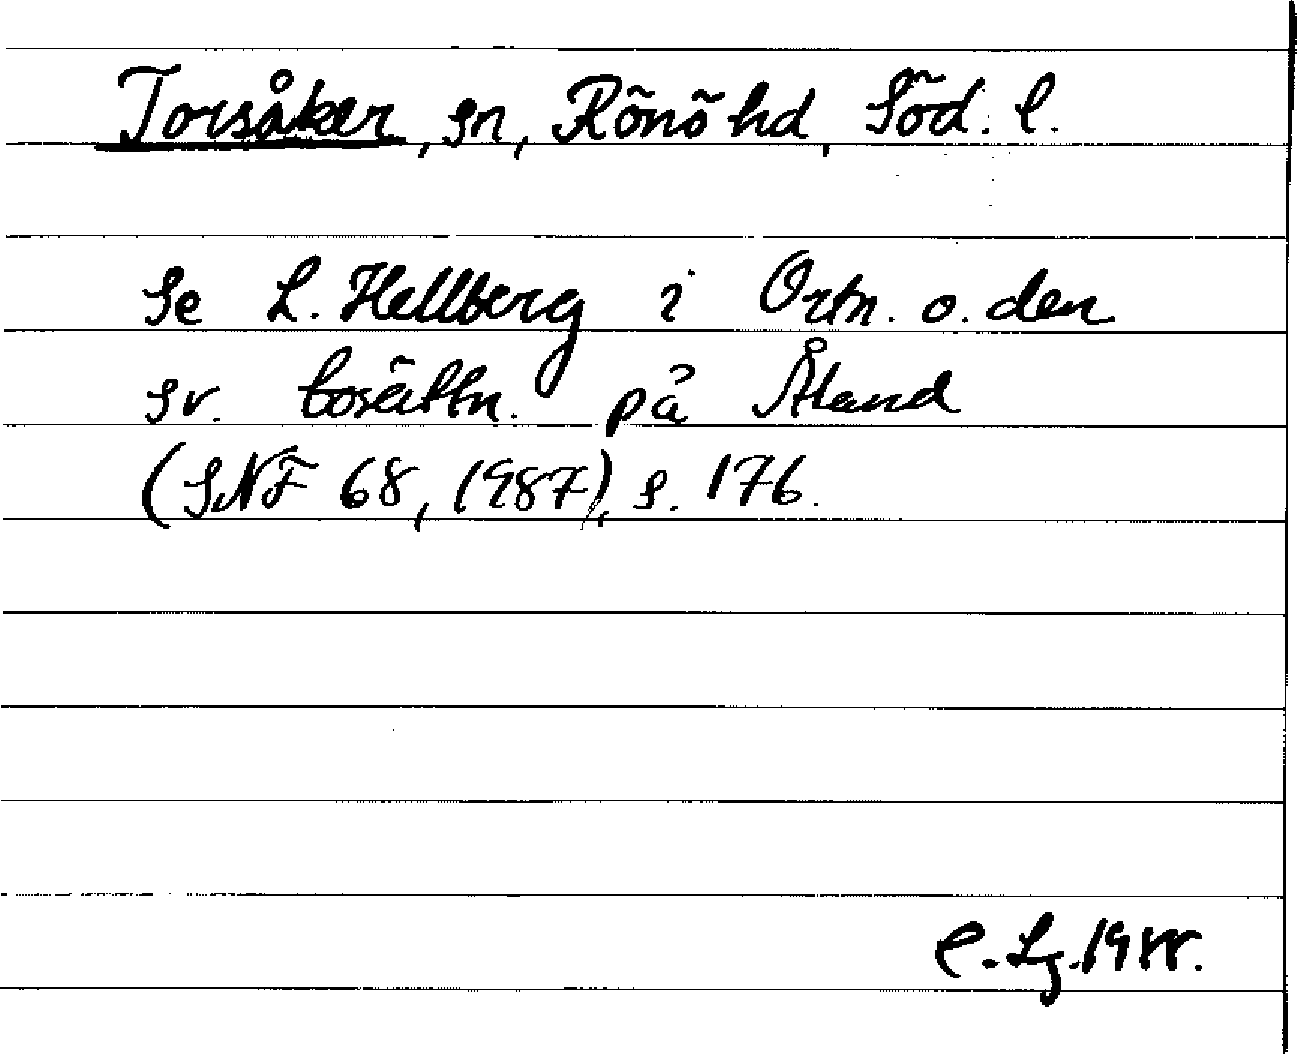 Torsåker, sn, Rönö hd, Söd. l.
Se L. Hellberg i Ortn. o. den
sv. bosättn. på Åland
(SNF 68, 1987), s. 176.
C. Lg. 1988.